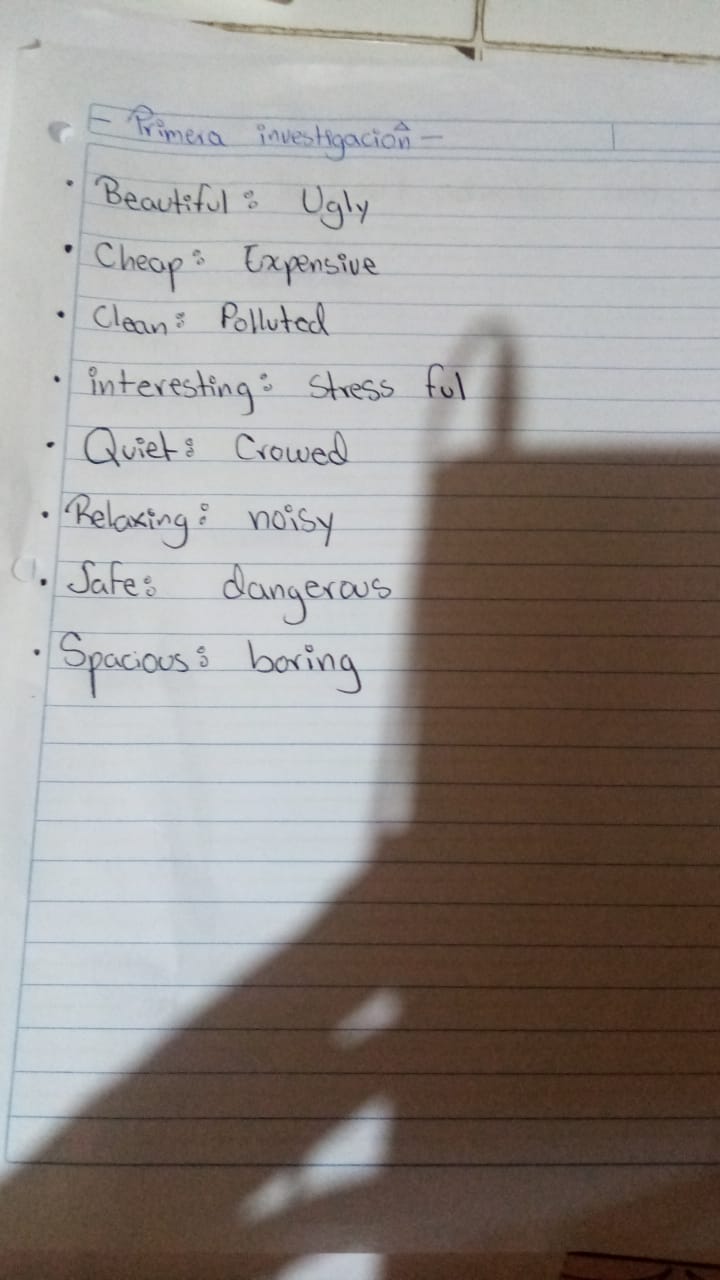 - Primera investigación -
• Beautiful: Ugly
• Cheap: Expensive
• Clean: Polluted
• interesting: stress ful
• Quiet: Crowed
• Relaxing: noisy
• Safe: dangerous
• Spacious: boring